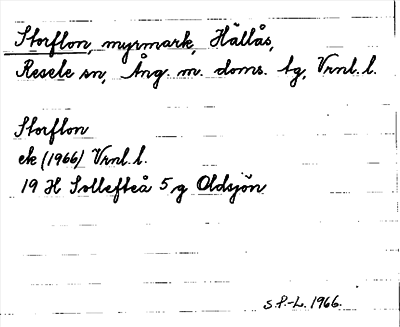 Storflon, myrmark, Hällås,
Resele sn, Ång. m. doms. tg, Vrnl. l.
Storflon
ek (1966) Vrnl. l.
19 H Sollefteå 5 g Oldsjön
S.P.-L. 1966.